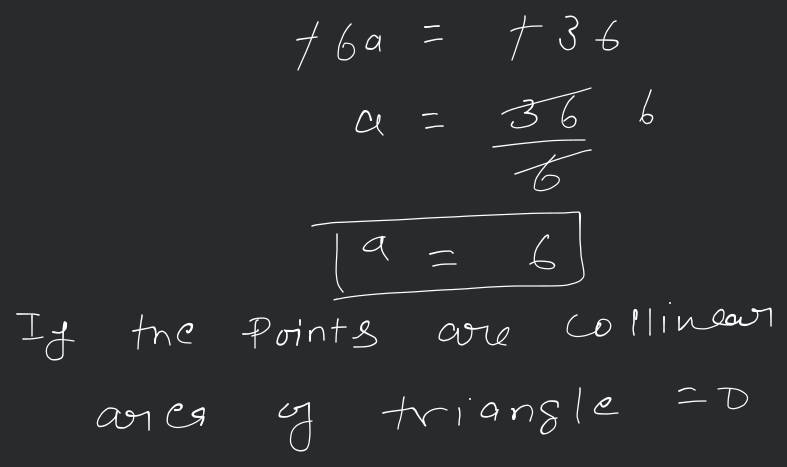 +6a = +36
a = 36/6 6
a = 6
If the Points are collinear
area of triangle = 0